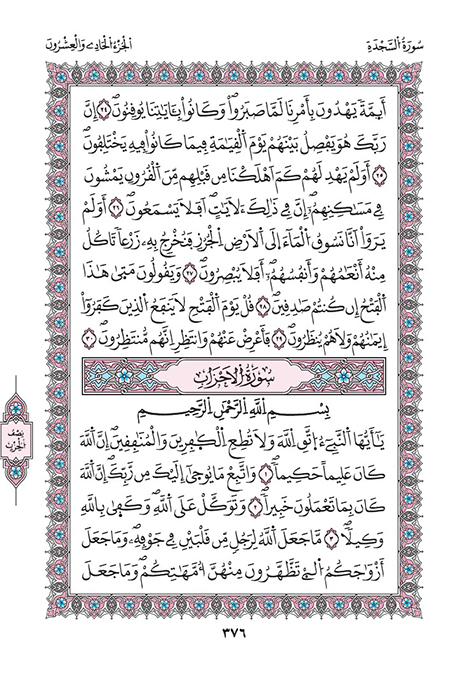 سُورَةُ السَّجْدَةِ
الجُزْءُ الحَادِے وَالْعِشْرُونَ
أَيِمَّةً يَهْدُونَ بِأَمْرِنَا لَمَّا صَبَرُواْ وَكَانُواْ بِـَٔايَٰتِنَا يُوقِنُونَ ٢٤ إِنَّ
رَبَّكَ هُوَ يَفْصِلُ بَيْنَهُمْ يَوْمَ اَلْقِيَٰمَةِ فِيمَا كَانُواْ فِيهِ يَخْتَلِفُونَ
٢٥ أَوَلَمْ يَهْدِ لَهُمْ كَمَ اَهْلَكْنَا مِن قَبْلِهِم مِّنَ اَلْقُرُونِ يَمْشُونَ
فِے مَسَٰكِنِهِمُۥٓ إِنَّ فِے ذَٰلِكَ ءَلَايَٰتٍ اَفَلَا يَسْمَعُونَ ٢٦ أَوَلَمْ
يَرَوَاْ اَنَّا نَسُوقُ اُلْمَآءَ إِلَى اَلَارْضِ اِلْجُرُزِ فَنُخْرِجُ بِهِۦ زَرْعاٗ تَاكُلُ
مِنْهُ أَنْعَٰمُهُمْ وَأَنفُسُهُمُۥٓ أَفَلَا يُبْصِرُونَ ٢٧ وَيَقُولُونَ مَتَىٰ هَٰذَا
اَلْفَتْحُ إِن كُنتُمْ صَٰدِقِينَ ٢٨ قُلْ يَوْمَ اَلْفَتْحِ لَا يَنفَعُ اُلذِينَ كَفَرُوٓاْ
إِيمَٰنُهُمْ وَلَا هُمْ يُنظَرُونَ ٢٩ فَأَعْرِضْ عَنْهُمْ وَانتَظِرِ اِنَّهُم مُّنتَظِرُونَ ٣٠
سُورَةُ الَاحْزَابِ
بِسْمِ اِللَّهِ اِلرَّحْمَٰنِ اِلرَّحِيمِ
يَٰٓأَيُّهَا اَلنَّبِےٓءُ اُتَّقِ اِللَّهَ وَلَا تُطِعِ اِلْكَٰفِرِينَ وَالْمُنَٰفِقِينَ إِنَّ اَللَّهَ
كَانَ عَلِيماً حَكِيماٗ ١ وَاتَّبِعْ مَا يُوحَىٰٓ إِلَيْكَ مِن رَّبِّكَ إِنَّ اَللَّهَ
كَانَ بِمَا تَعْمَلُونَ خَبِيراٗ ٢ وَتَوَكَّلْ عَلَى اَللَّهِ وَكَفَىٰ بِاللَّهِ
وَكِيلاٗ ٣ مَّا جَعَلَ اَللَّهُ لِرَجُلٖ مِّن قَلْبَيْنِ فِے جَوْفِهِۦ وَمَا جَعَلَ
أَزْوَٰجَكُمُ اُلَّٰٓـِٕے تَظَّهَّرُونَ مِنْهُنَّ أُمَّهَٰتِكُمْ وَمَا جَعَلَ
نِصْفُ الحِزْبِ
٣٧٦